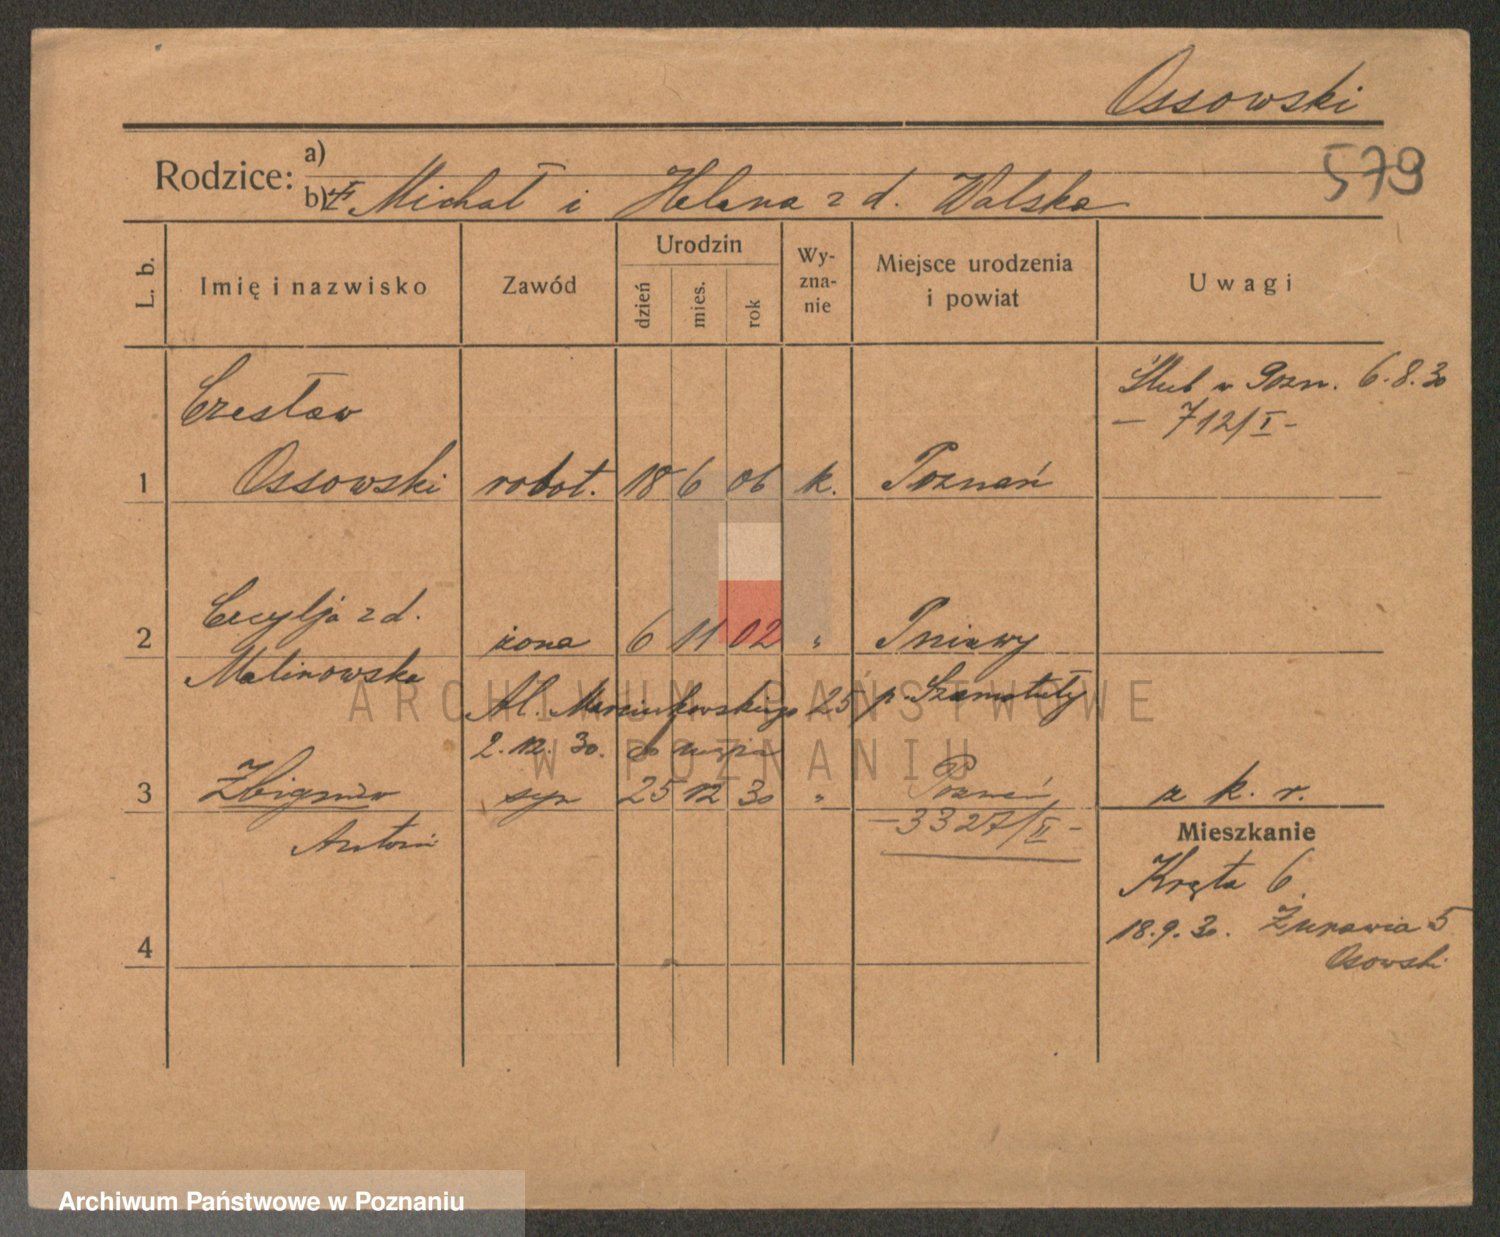 Ossowski
579
Rodzice:
a)
b) Michał i Helena z d. Walska
L. b.
Imię i nazwisko
Zawód
Urodzin
dzień
mies.
rok
Wy-
zna-
nie
Miejsce urodzenia
i powiat
Uwagi
Ślub w Pozn. 6.8.30
— 712/I —
Czesław
1 Ossowski robot. 18 6 06 k. Poznań
Cecylja z d.
2 żona 6 11 02 " Pniewy
Malinowska
p. Szamotuły
Al. Marcinkowskiego 25
2. 12. 30.
3 Zbigniew syn 25 12 30 " Poznań
Antoni
— 3327/II —
z k. r.
Mieszkanie
Kręta 6
18.9.30. Żurawia 5
Osowski
4
ARCHIWUM PAŃSTWOWE
W POZNANIU
Archiwum Państwowe w Poznaniu